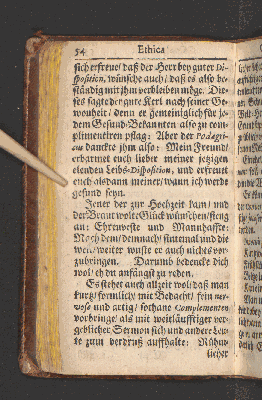 54 Ethica
sich erfreue/ daß der Herr bey guter Di-
sposition, wünsche auch/ daß es also be-
ständig mit ihm verbleiben möge. Die-
ses sagte der gute Kerl nach seiner Ge-
wonheit/ denn er gemeiniglich für je-
dem Gesund-Bekannten also zu com-
plimentiren pflag: Aber der Podagri-
cus danckte ihm also: Mein Freund/
erbarmet euch lieber meiner jetzigen
elenden Leibs-Disposition, und erfreuet
euch alsdann meiner/ wann ich werde
gesund seyn.
Jener der zur Hochzeit kam/ und
der Braut wolte Glück wünschen/ fieng
an: Ehrenveste und Mannhaffte:
Nachdem/ demnach/ sintemal und die-
weil/ weiter wuste er auch nichts vor-
zubringen. Darumb bedencke dich
wol/ eh du anfängst zu reden.
Es stehet auch allzeit wol/ daß man
kurtz/ förmlich/ mit Bedacht/ fein ner-
vose und artig/ sothane Complementen
vorbringe/ als mit weitläufftiger ver-
geblicher Sermon sich und andere Leu-
te zum verdruß auffhalte:
licher